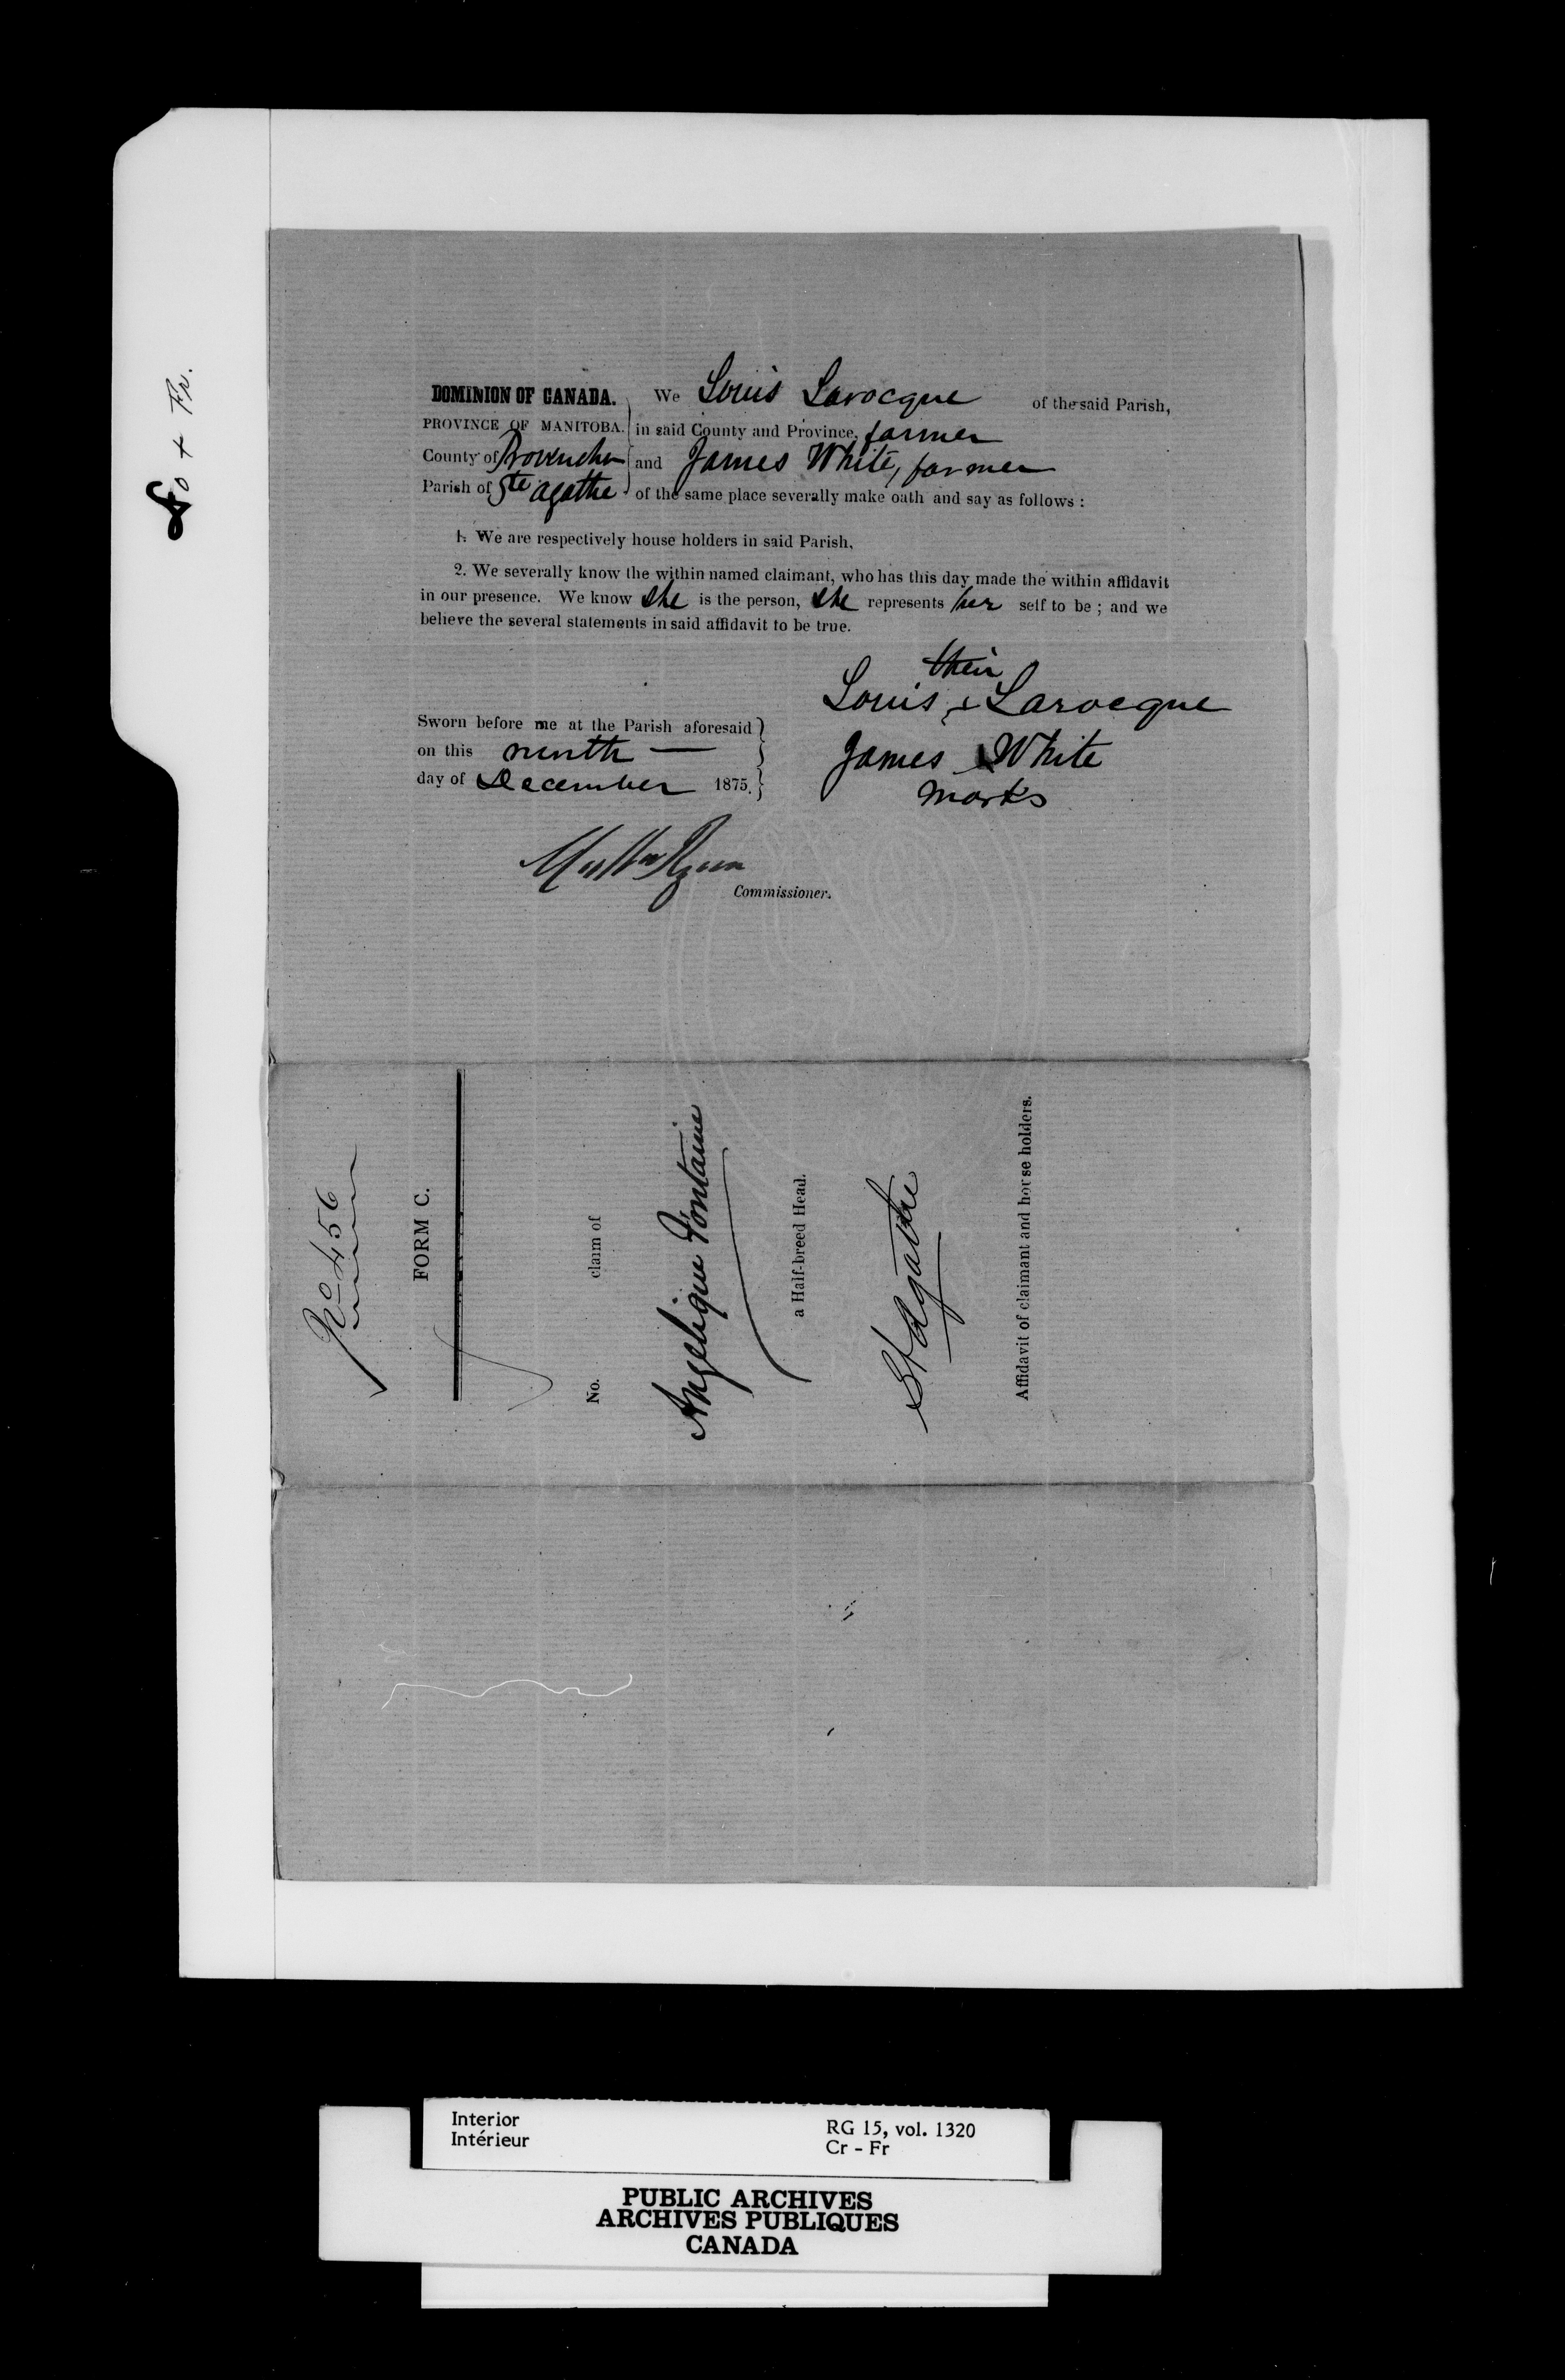 Fo + Fr.
DOMINION OF CANADA. We Louis Larocque of the said Parish,
PROVINCE OF MANITOBA. in said County and Province, farmer
County of Provencher and James White, farmer
Parish of Ste Agathe of the same place severally make oath and say as follows :
1. We are respectively house holders in said Parish,
2. We severally know the within named claimant, who has this day made the within affidavit
in our presence. We know she is the person, she represents her self to be ; and we
believe the several statements in said affidavit to be true.
their
Louis x Larocque
Sworn before me at the Parish aforesaid
on this ninth
James White
day of December 1875.
marks
Commissioner.
No 456
FORM C.
No. claim of
Angelique Fontaine
a Half-breed Head.
St Agathe
Affidavit of claimant and horse holders.
Interior
Intérieur
RG 15, vol. 1320
Cr - Fr
PUBLIC ARCHIVES
ARCHIVES PUBLIQUES
CANADA